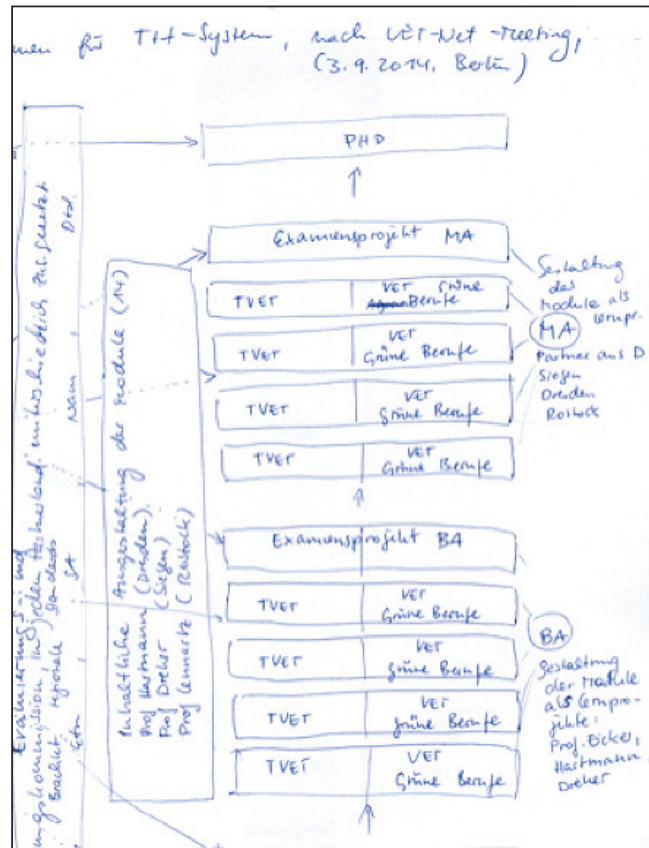 men für TtT-System, nach VET-Net-Meeting,
(3.9.2014, Berlin)
PHD
Examensprojekt MA
TVET
VET Grüne
Berufe
TVET
VET
Grüne Berufe
TVET
VET
Grüne Berufe
TVET
VET
Grüne Berufe
Gestaltung
der
Module als
Lernpr.
MA
Partner aus D
Siegen
Dresden
Rostock
Examensprojekt BA
TVET
VET
Grüne Berufe
TVET
VET
Grüne Berufe
TVET
VET
Grüne Berufe
TVET
VET
Grüne Berufe
BA
Gestaltung
der Module
als Lernpro-
jekte:
Prof. Eicker,
Hartmann,
Dreher
Inhaltliche Ausgestaltung der Module (14)
Prof Hartmann (Dresden)
Prof Dreher (Siegen)
Prof Lennartz (Rostock)
ungskommission, in jedem Partnerland unterschiedlich zus.gesetzt
regionale Standards
Äth.
SA
Nam.